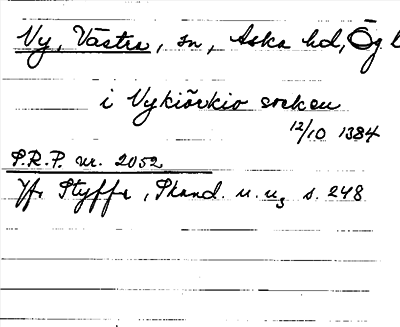 Vy, Västra, sn, Aska hd, Ög l
i Vykiörkio socken
12/10 1384
S.R.P. nr. 2052
Jfr Styffe, Skand. u. u., s. 248